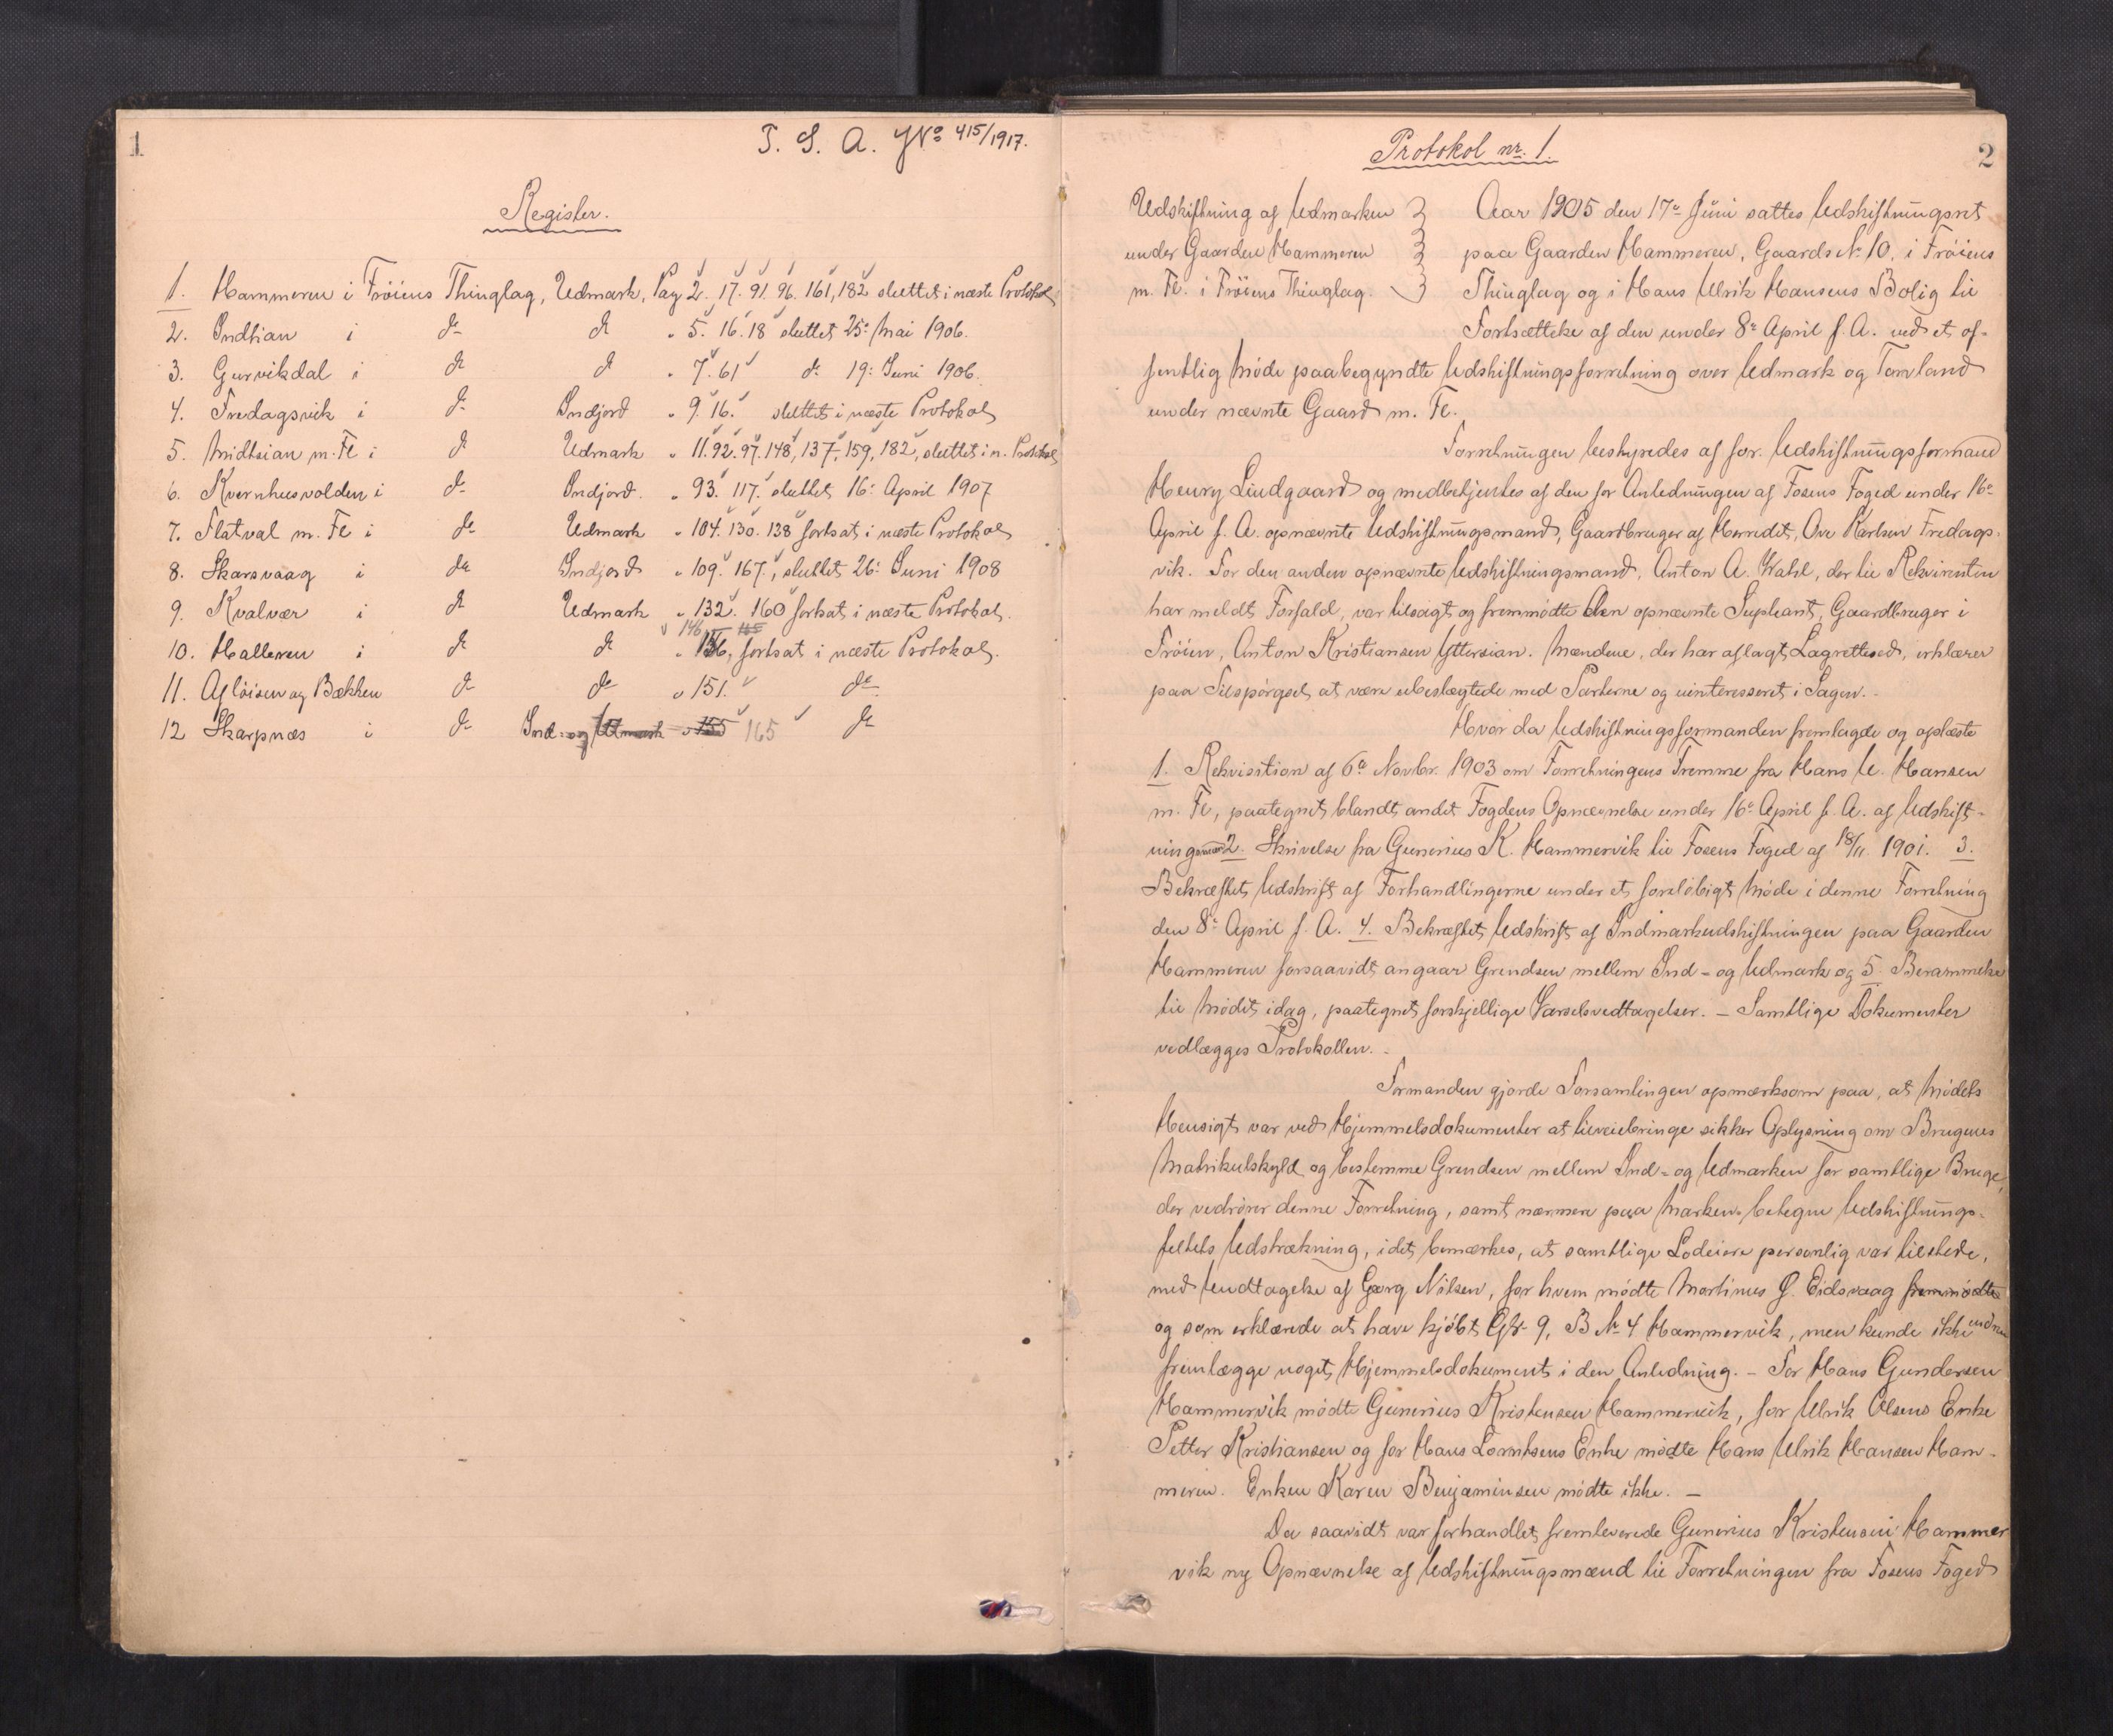 1
T. S. A. J№ 415/1917.
Register.
1. Hammeren i Fröiens Thinglag, Udmark, Pag 2. 17. 91. 96. 161, 182 sluttet i næste Protokol
2. Indhian i do do " 5. 16. 18 sluttet 25: Mai 1906.
3. Gurvikdal i do do " 7. 61 do 19: Juni 1906.
4. Fredagsvik i do Indjord " 9. 16. sluttet i næste Protokol
5. Midtsian m. Fl i do Udmark " 11. 92. 97. 148, 137, 159, 182, sluttet i n. Protokol
6. Kvernhusvolden i do Indjord. " 93. 117. sluttet 16: April 1907
7. Flatval m. Fl i do Udmark " 104. 130. 138 fortsat i næste Protokol
8. Skarsvaag i do Indjord " 109. 167., sluttet 26: Juni 1908
9. Kvalvær i do Udmark " 132. 160 fortsat i næste Protokol.
10. Halleren i do do " 146 fortsat i næste Protokol.
11. Aflöisen og Bækken do do " 151. do
12 Skarpnæs i do Ind- og Udmark " 155 165 do
Protokol nr. 1.
2
Udskiftning af Udmarken
under Gaarden Hammeren
m. Fl. i Fröiens Thinglag.
Aar 1905 den 17de Juni sattes Udskiftningsret
paa Gaarden Hammeren, Gaards No 10, i Fröiens
Thinglag og i Hans Ulrik Hansens Bolig til
Fortsættelse af den under 8de April f. A. ved et of-
fentlig Möde paabegyndte Udskiftningsforretning over Udmark og Torvland
under nævnte Gaard m. Fl.
Forretningen bestyredes af for. Udskiftningsformand
Henry Lindgaard og medbetjentes af den for Anledningen af Fosens Foged under 16de
April f. A. opnævnte Udskiftningsmand, Gaardbruger af Herredet, Ove Karlsen Fredags-
vik. For den anden opnævnte Udskiftningsmand, Anton A. Wahl, der til Rekvirenten
har meldt Forfald, var tilsagt og fremmödte den opnævnte Supleant, Gaardbruger i
Fröien, Anton Kristiansen Yttersian. Mændene, der har aflagt Lagretteed, erklærer
paa Tilspörgsel at være ubeslægtede med Parterne og uinteresseret i Sagen. -
Hvor da Udskiftningsformanden fremlagde og oplæste
1. Rekvisition af 6te Novbr. 1903 om Forretningens Fremme fra Hans U. Hansen
m. Fl, paategnet blandt andet Fogdens Opnævnelse under 16de April f. A. af Udskift-
ningsmænd 2. Skrivelse fra Gunerius K. Hammervik til Fosens Foged af 18/11 1901. 3.
Bekræftet Udskrift af Forhandlingerne under et forelöbigt Möde i denne Forretning
den 8de April f. A. 4. Bekræftet Udskrift af Indmarkudskiftningen paa Gaarden
Hammeren forsaavidt angaar Grendsen mellem Ind- og Udmark og 5. Berammelse
til Mödet idag, paategnet forskjellige Varselsvedtagelser. - Samtlige Dokumenter
vedlægges Protokollen. -
Formanden gjorde Forsamlingen opmærksom paa, at Mödets
Hensigt var ved Hjemmelsdokumenter at tilveiebringe sikker Oplysning om Brugenes
Matrikulskyld og bestemme Grendsen mellem Ind- og Udmarken for samtlige Bruge,
der vedrörer denne Forretning, samt nærmere paa Marken betegne Udskiftnings-
feltets Udstrækning, idet bemærkes, at samtlige Lodeiere personlig var tilstede,
med Undtagelse af Georg Nilsen, for hvem mödte Martinus J. Eidsvaag fremmödte
og som erklærede at have kjöbt GNr 9, B No 4 Hammervik, men kunde ikke endnu
fremlægge noget Hjemmelsdokument i den Anledning. - For Hans Gundersen
Hammervik mödte Gunerius Kristensen Hammervik, for Ulrik Olsens Enke
Petter Kristiansen og for Hans Lorntsens Enke mödte Hans Ulrik Hansen Ham-
meren. Enken Karen Benjaminsen mödte ikke. -
Da saavidt var forhandlet fremleverede Gunerius Kristensen Hammer
vik ny Opnævnelse af Udskiftningsmænd til Forretningen fra Fosens Foged